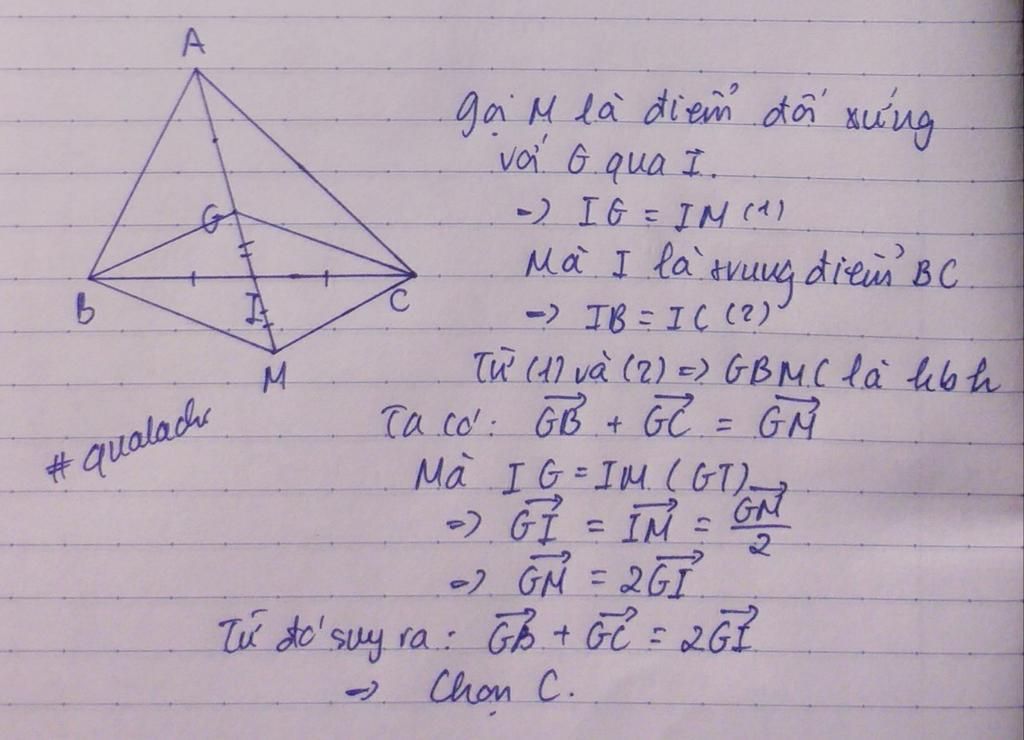 A
G
B
I
C
M
#qualadu
Gọi M là điểm đối xứng
với G qua I.
=> IG = IM (1)
Mà I là trung điểm BC
=> IB = IC (2)
Từ (1) và (2) => GBMC là hbh
Ta có: \overrightarrow{GB} + \overrightarrow{GC} = \overrightarrow{GM}
Mà IG = IM (GT)
=> \overrightarrow{GI} = \overrightarrow{IM} = \frac{\overrightarrow{GM}}{2}
=> \overrightarrow{GM} = 2\overrightarrow{GI}
Từ đó suy ra: \overrightarrow{GB} + \overrightarrow{GC} = 2\overrightarrow{GI}
=> Chọn C.